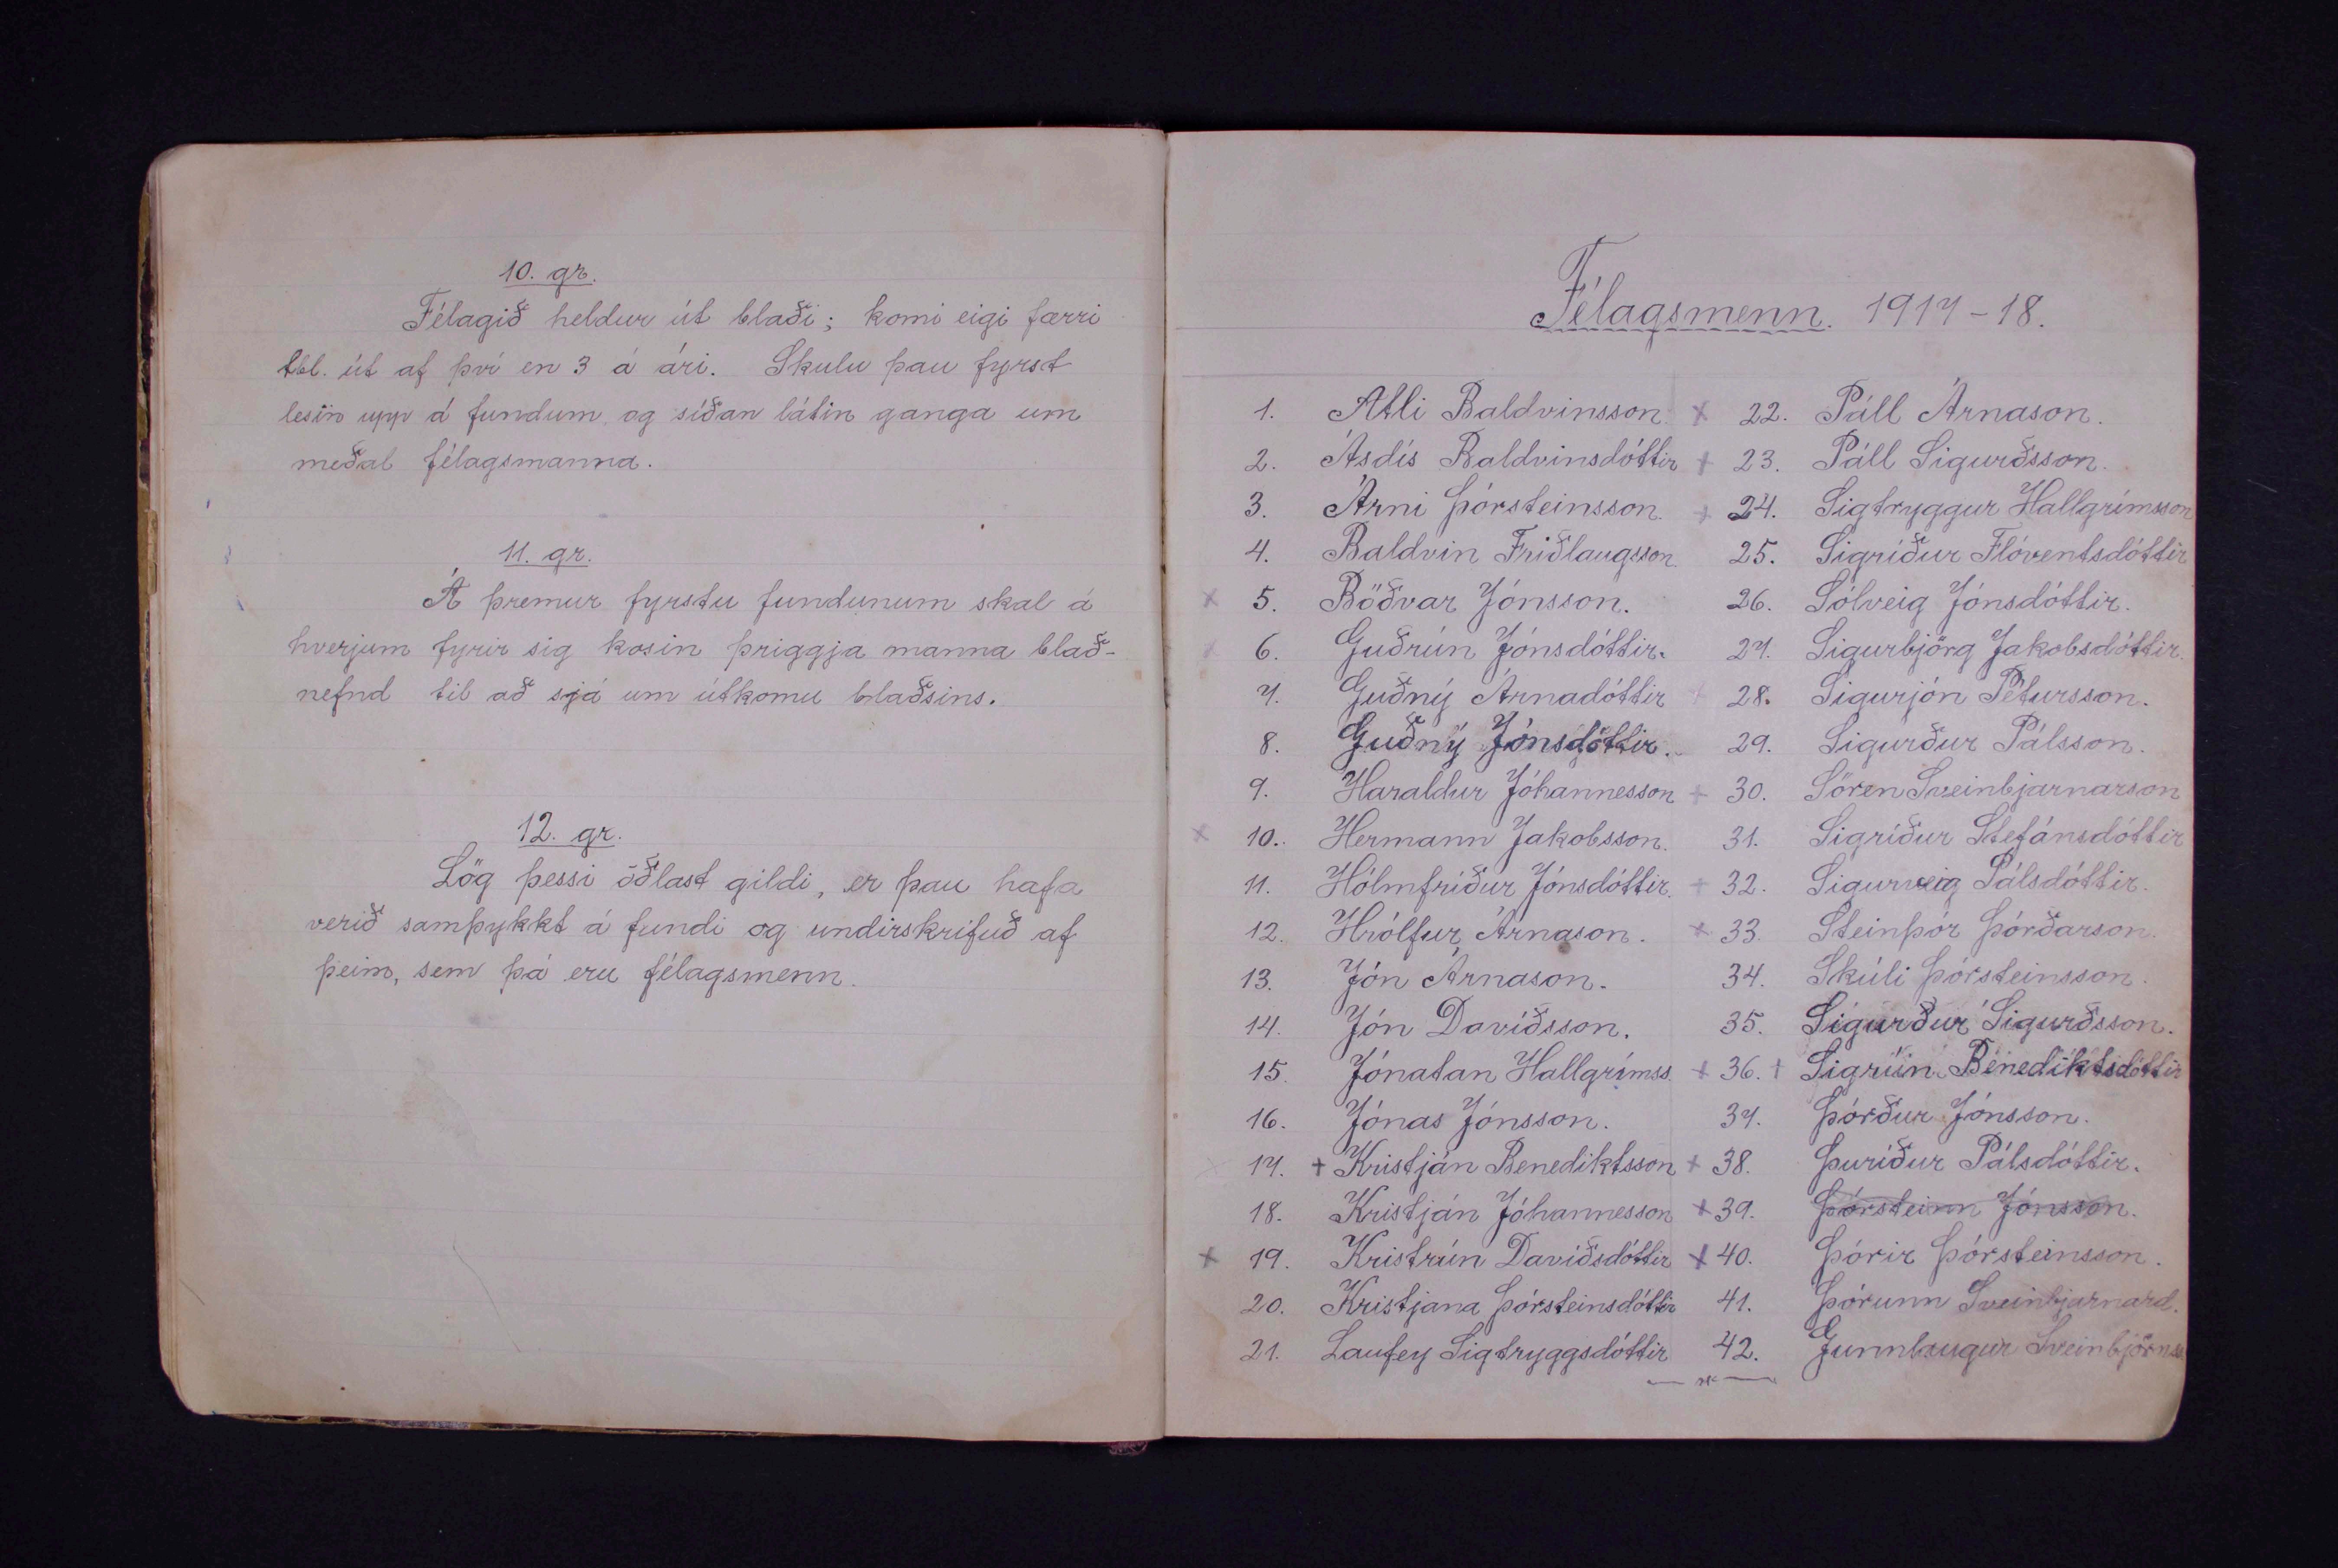 10. gr.
Félagið heldur út blaði; komi eigi færri
tbl. út af því en 3 á ári. Skulu þau fyrst
lesin upp á fundum og síðan látin ganga um
meðal félagsmanna.
11. gr.
Á þremur fyrstu fundunum skal á
hverjum fyrir sig kosin þriggja manna blað-
nefnd til að sjá um útkomu blaðsins.
12. gr.
Lög þessi öðlast gildi, er þau hafa
verið samþykkt á fundi og undirskrifuð af
þeim, sem þá eru félagsmenn.
Félagsmenn. 1917-18.
1. Atli Baldvinsson.
2. Ásdís Baldvinsdóttir
3. Árni Þórsteinsson.
4. Baldvin Friðlaugsson.
x 5. Böðvar Jónsson.
x 6. Guðrún Jónsdóttir.
7. Guðný Árnadóttir
8. Guðný Jónsdóttir.
9. Haraldur Jóhannesson
x 10. Hermann Jakobsson.
11. Hólmfríður Jónsdóttir.
12. Hrólfur Árnason.
13. Jón Árnason.
14. Jón Davíðsson.
15. Jónatan Hallgrímss.
16. Jónas Jónsson.
x 17. + Kristján Benediktsson
18. Kristján Jóhannesson
x 19. Kristrún Davíðsdóttir
20. Kristjana Þórsteinsdóttir
21. Laufey Sigtryggsdóttir
x 22. Páll Árnason.
+ 23. Páll Sigurðsson.
+ 24. Sigtryggur Hallgrímsson
25. Sigríður Flóventsdóttir
26. Sólveig Jónsdóttir.
27. Sigurbjörg Jakobsdóttir.
+ 28. Sigurjón Pétursson.
29. Sigurður Pálsson.
+ 30. Sören Sveinbjarnarson
31. Sigríður Stefánsdóttir
+ 32. Sigurveig Pálsdóttir.
x 33. Steinþór Þórðarson.
34. Skúli Þórsteinsson.
35. Sigurður Sigurðsson.
+ 36. + Sigrún Benediktsdóttir
37. Þórður Jónsson.
+ 38. Þuríður Pálsdóttir.
x 39. Þórsteinn Jónsson.
x 40. Þórir Þórsteinsson.
41. Þórunn Sveinbjarnard.
42. Gunnlaugur Sveinbjörnss